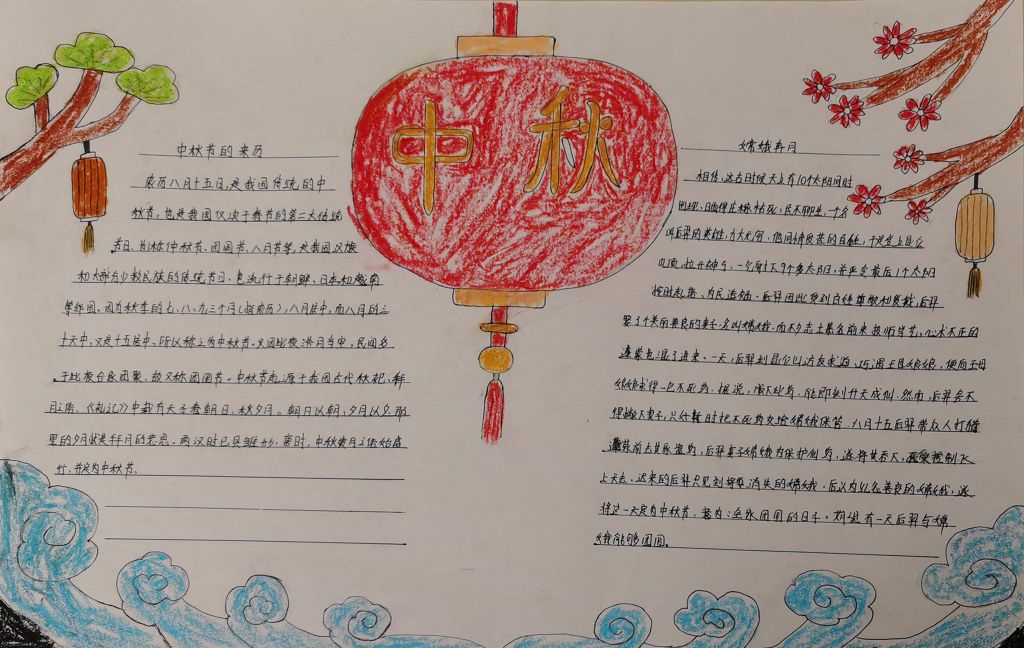 中秋
中秋节的来历
农历八月十五日，是我国传统的中
秋节，也是我国仅次于春节的第二大传统
节日、别称仲秋节、团圆节、八月节等，是我国汉族
和大部分少数民族的传统节日、也流行于朝鲜、日本和越南
等邻国、因为秋季的七、八、九三个月(指农历)，八月居中，而八月的三
十天中，又是十五居中、所以称之为中秋节。又因此夜浩月当空，民间多
于此夜合家团聚，故又称团圆节。中秋节起源于我国古代秋祀、拜
月之俗、《礼记》中载有天子春朝日，秋夕月。朝日以朝，夕月以夕，那
里的夕月就是拜月的意思。两汉时已具雏形，唐时，中秋赏月之俗始盛
行，并定为中秋节，
嫦娥奔月
相传，远古时候天上有10个太阳同时
出现，晒得庄稼枯死，民不聊生，一个名
叫后羿的英雄，力大无穷，他同情受苦的百姓，于是登上昆仑
山顶，拉开神弓，一气射下9个多太阳，并严令最后1个太阳
按时起落，为民造福，后羿因此受到百姓尊敬和爱戴，后羿
娶了个美丽善良的妻子，名叫嫦娥，而不少志士慕名前来投师学艺，心术不正的
蓬蒙也混了进来、一天，后羿到昆仑山访友求道，巧遇王母娘娘，便向王母
娘娘求得一包不死药。据说，服下此药，能即刻升天成仙，然而，后羿舍不
得撇下妻子，只好暂时把不死药交给嫦娥保管。八月十五后羿带众人打猎
上天去，迟来的后羿只见到将要消失的嫦娥。后以为纪念善良的嫦娥，遂
将这一天定为中秋节，
娥能够团圆。